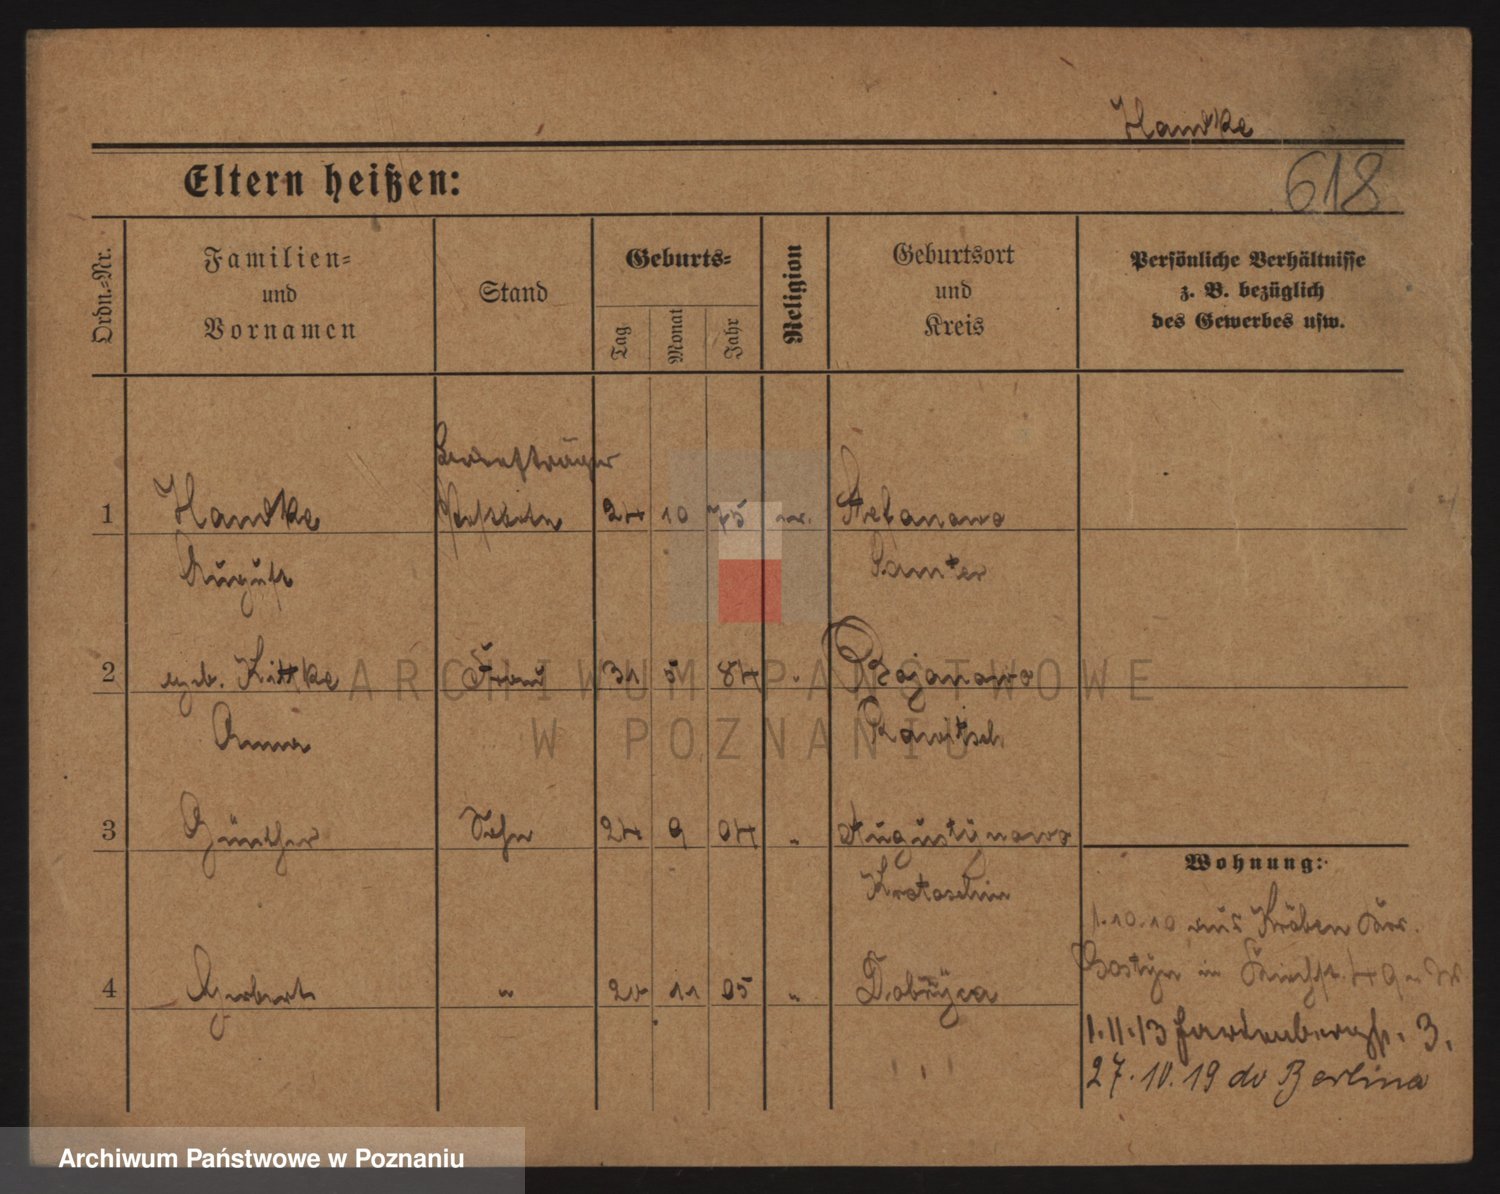 Handke
Eltern heißen:
618
Ordn.-Nr.
Familien-
und
Vornamen
Stand
Geburts-
Tag
Monat
Jahr
Religion
Geburtsort
und
Kreis
Persönliche Verhältnisse
z. B. bezüglich
des Gewerbes usw.
Briefträger
1 Handke Postbote 24 10 75 ev. Stefanowo
August Samter
2 geb. Kittke Frau 31 5 84 " Bojanowo
Anna Rawitsch
3 Günther Sohn 24 9 04 " Augustynowo
Krotoschin
4 Herbert " 20 11 05 " Dobrzyca
Wohnung:
1.10.10 aus Kröben Kr.
Gostyn in
1.11.13 Hardenbergstr. 3.
27.10.19 do Berlina
ARCHIWUM PAŃSTWOWE
W POZNANIU
Archiwum Państwowe w Poznaniu